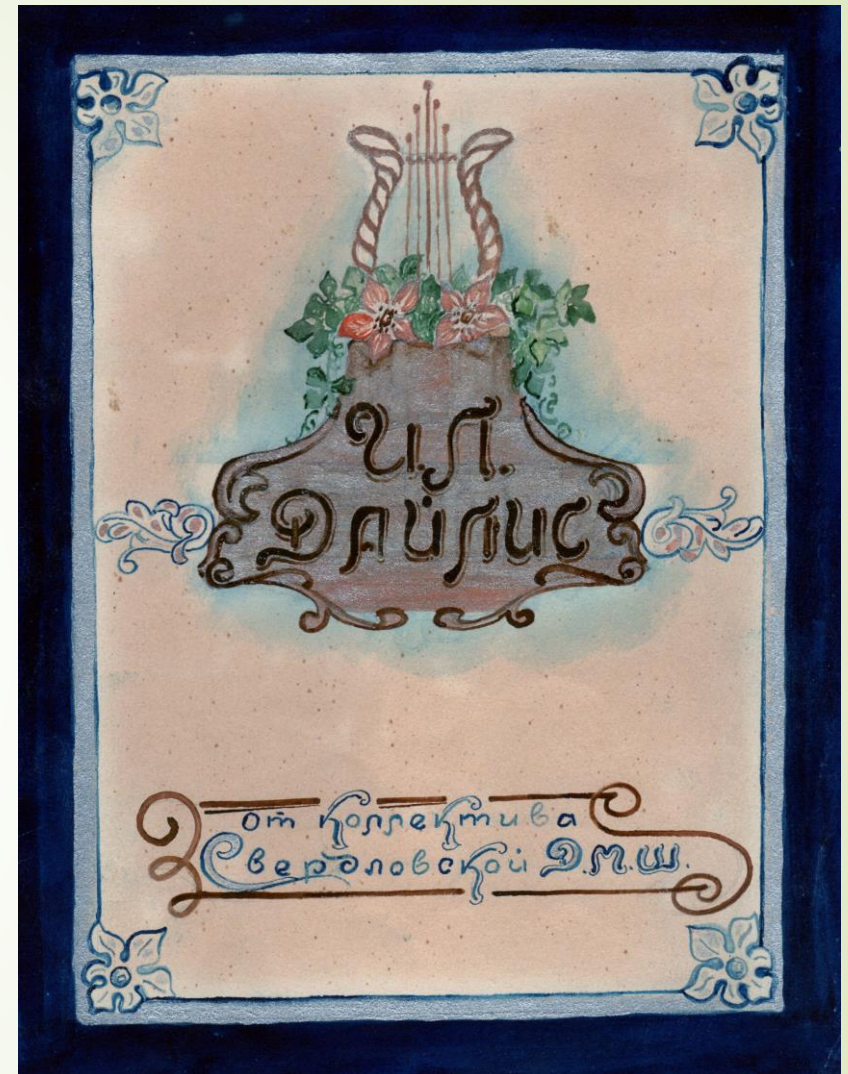 И.Л.
ДАЙЛИС
от коллектива
Свердловской Д.М.Ш.